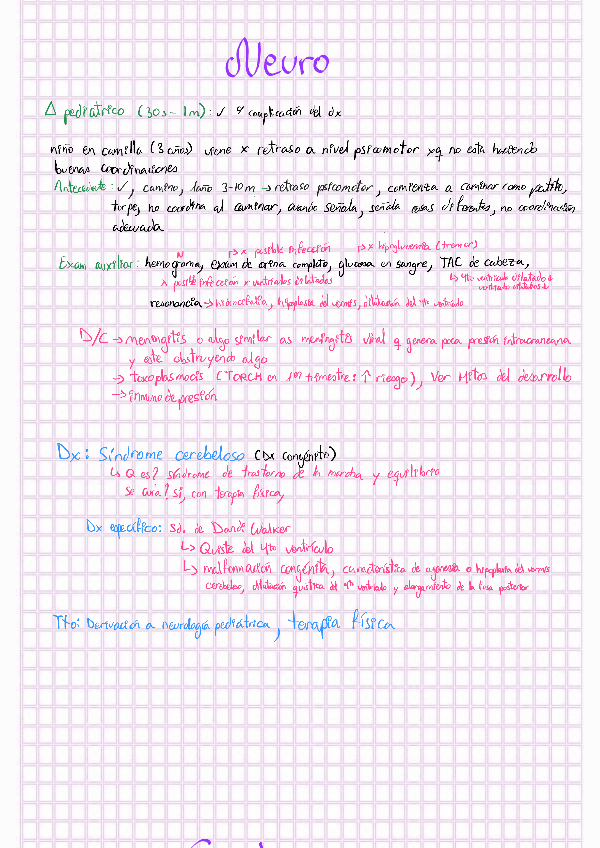 Neuro
Δ pediatrico (30s - 1m): ✓ y complicación del dx
niño en camilla (3 años) viene x retraso a nivel psicomotor xq no esta haciendo
buenas coordinaciones
Antecedente: ✓, camino, 1año 3-10m → retraso psicomotor, comienza a caminar como patito,
torpe, no coordina al caminar, cuando señala, señala cosas diferentes, no coordinación
adecuada
N ↱ x posible infección ↱ x hipoglucemia (tremor)
Exam auxiliar: hemograma, examen de orina completo, glucosa en sangre, TAC de cabeza,
x posible infección x ventriculos dilatados ↳ 4to ventriculo dilatado
resonancia → hidrocefalia, hipoplasia del vermis, dilatación del 4to ventriculo
D/C → meningitis o algo similar as meningitis viral q genera poca presión intracraneana
y este obstruyendo algo
→ toxoplasmosis (TORCH en 1er trimestre: ↑ riesgo), Ver Hitos del desarrollo
→ inmunodepresión
Dx: Síndrome cerebeloso (Dx congénito)
↳ Q es? síndrome de trastorno de la marcha y equilibrio
Se cura? Si, con terapia física,
Dx específico: Sd. de Dandi Walker
↳ Quiste del 4to ventrículo
↳ malformación congénita, característica de agenesia o hipoplasia del vermis
cerebeloso, dilatación quística del 4to ventriculo y alargamiento de la fosa posterior
Tto: Derivación a neurología pediátrica, terapia física